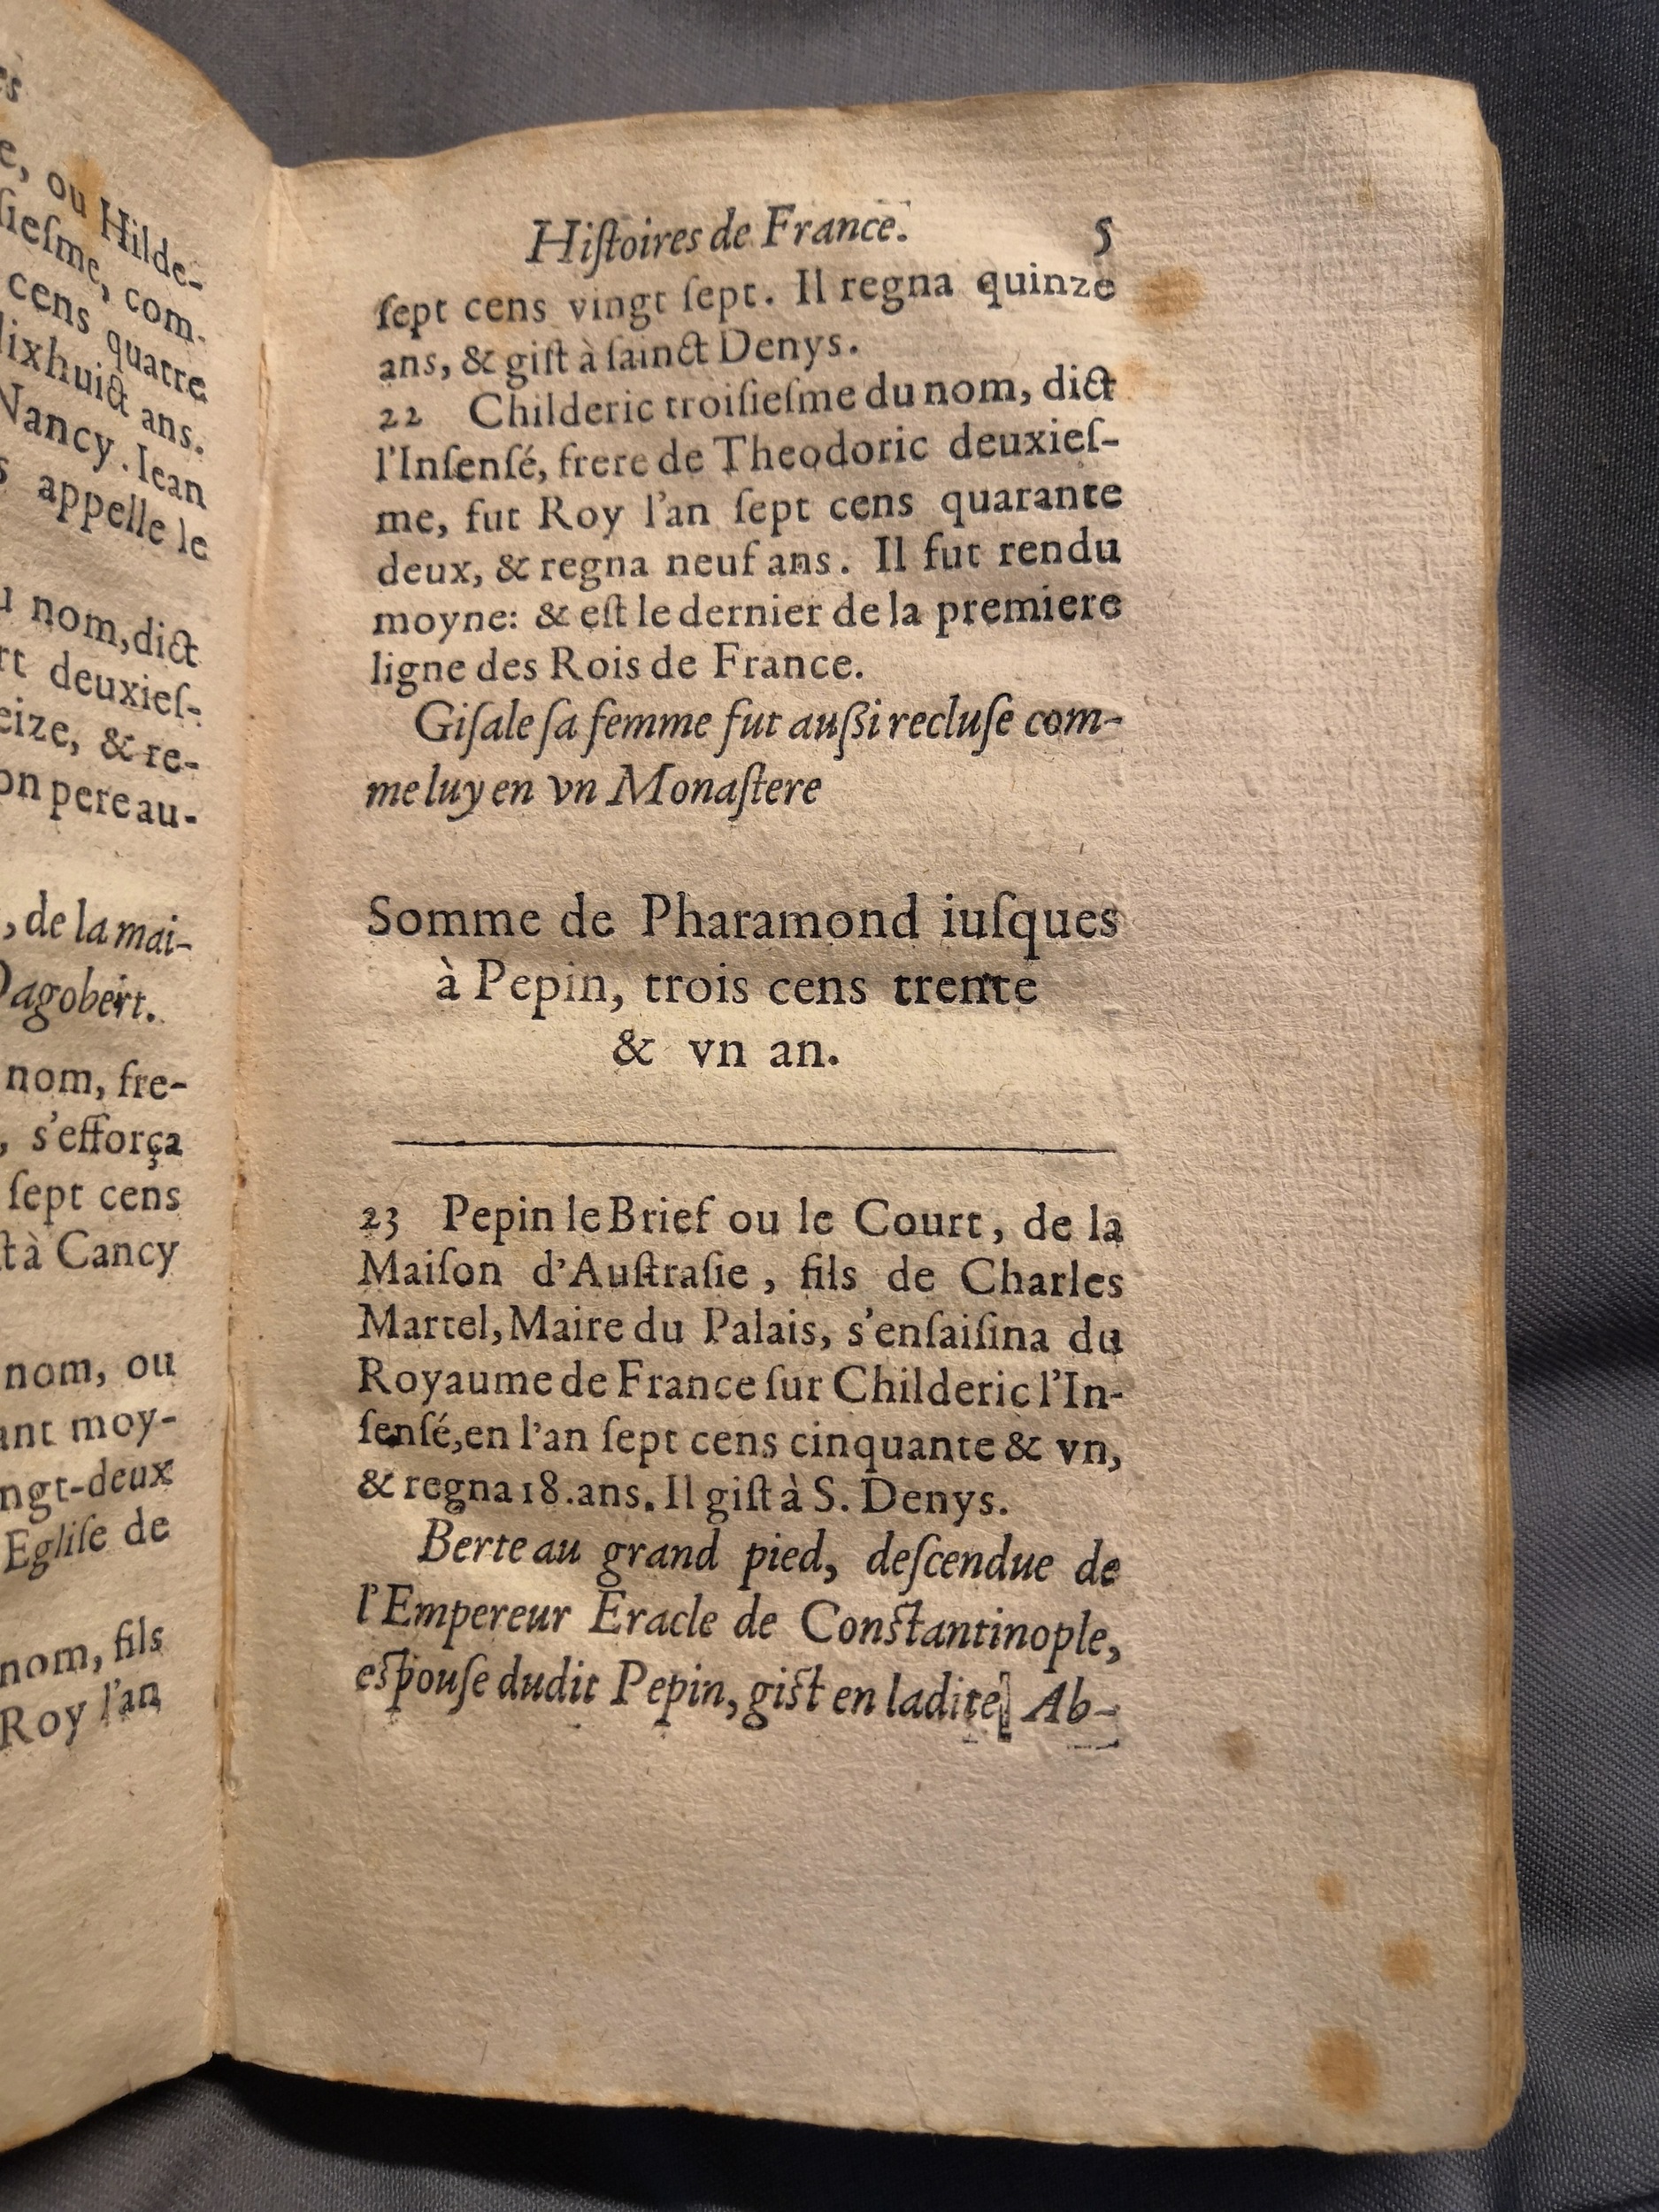 es
e, ou Hilde-
siesme, com-
cens quatre
dixhuict ans.
Nancy. Iean
s appelle le
u nom, dict
rt deuxies-
eize, & re-
on pere au-
, de la mai-
Dagobert.
nom, fre-
, s'efforça
sept cens
st à Cancy
nom, ou
ant moy-
ngt-deux
Eglise de
nom, fils
Roy l'an
Hiſtoires de France. 5
ſept cens vingt ſept. Il regna quinze
ans, & giſt à ſainct Denys.
22 Childeric troiſieſme du nom, dict
l'Inſenſé, frere de Theodoric deuxieſ-
me, fut Roy l'an ſept cens quarante
deux, & regna neuf ans. Il fut rendu
moyne: & eſt le dernier de la premiere
ligne des Rois de France.
Giſale ſa femme fut außi recluſe com-
me luy en vn Monaſtere
Somme de Pharamond iuſques
à Pepin, trois cens trente
& vn an.
23 Pepin le Brief ou le Court, de la
Maiſon d'Auſtraſie, fils de Charles
Martel, Maire du Palais, s'enſaiſina du
Royaume de France ſur Childeric l'In-
ſenſé, en l'an ſept cens cinquante & vn,
& regna 18. ans. Il giſt à S. Denys.
Berte au grand pied, deſcendue de
l'Empereur Eracle de Conſtantinople,
eſpouſe dudit Pepin, giſt en ladite Ab-